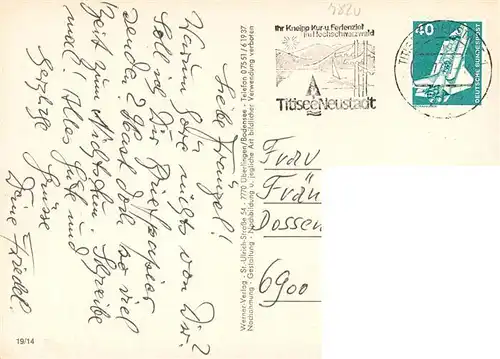 Liebe Fränzel!
Warum höre nichts von Dir?
Soll ich Dir Briefpapier
senden? Hast doch so viel
Zeit zum Nichtstun. Schreibe
mal! Alles Gute und
herzliche Grüsse
Deine Friedel.
Werner-Verlag · St.-Ulrich-Straße 54 · 7770 Überlingen/Bodensee · Telefon 07551/61937
Nachahmung · Gestaltung · Nachbildung u. jegliche Art bildlicher Verwendung verboten
19/14
Ihr Kneipp Kur-u. Ferienziel
im Hochschwarzwald
Titisee Neustadt
TITIS
40
DEUTSCHE BUNDESPOST
Frau
Frän
Dossen
6900